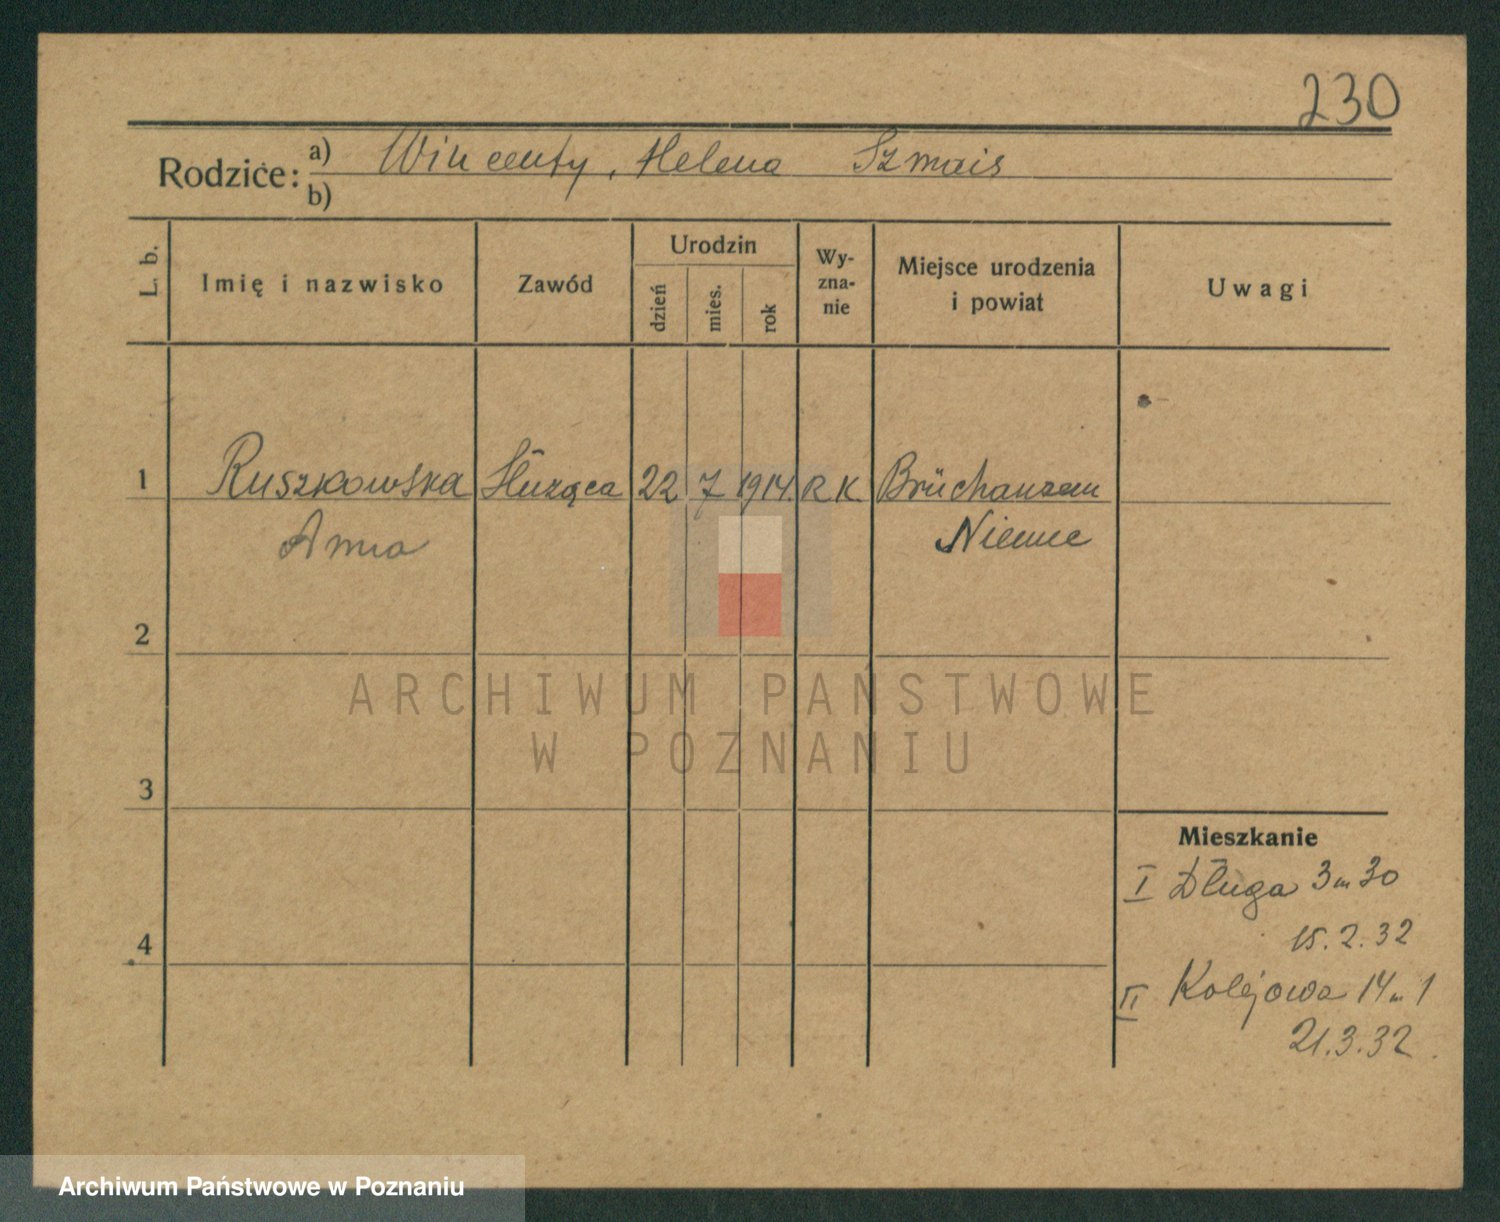 230
Rodzice: a) Wincenty, Helena Szmais
b)
L. b. Imię i nazwisko Zawód Urodzin dzień mies. rok Wy-zna-nie Miejsce urodzenia i powiat Uwagi
1 Ruszkowska Służąca 22 7 1914. RK Brüchauzen
Anna Niemce
2
ARCHIWUM PAŃSTWOWE
W POZNANIU
3
Mieszkanie
I Długa 3 m 30
15.2.32
4
II Kolejowa 14 m 1
21.3.32.
Archiwum Państwowe w Poznaniu